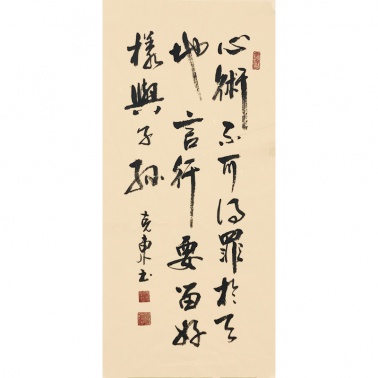 心術不可得罪於天
地言行要留好
樣與子孫
克東书